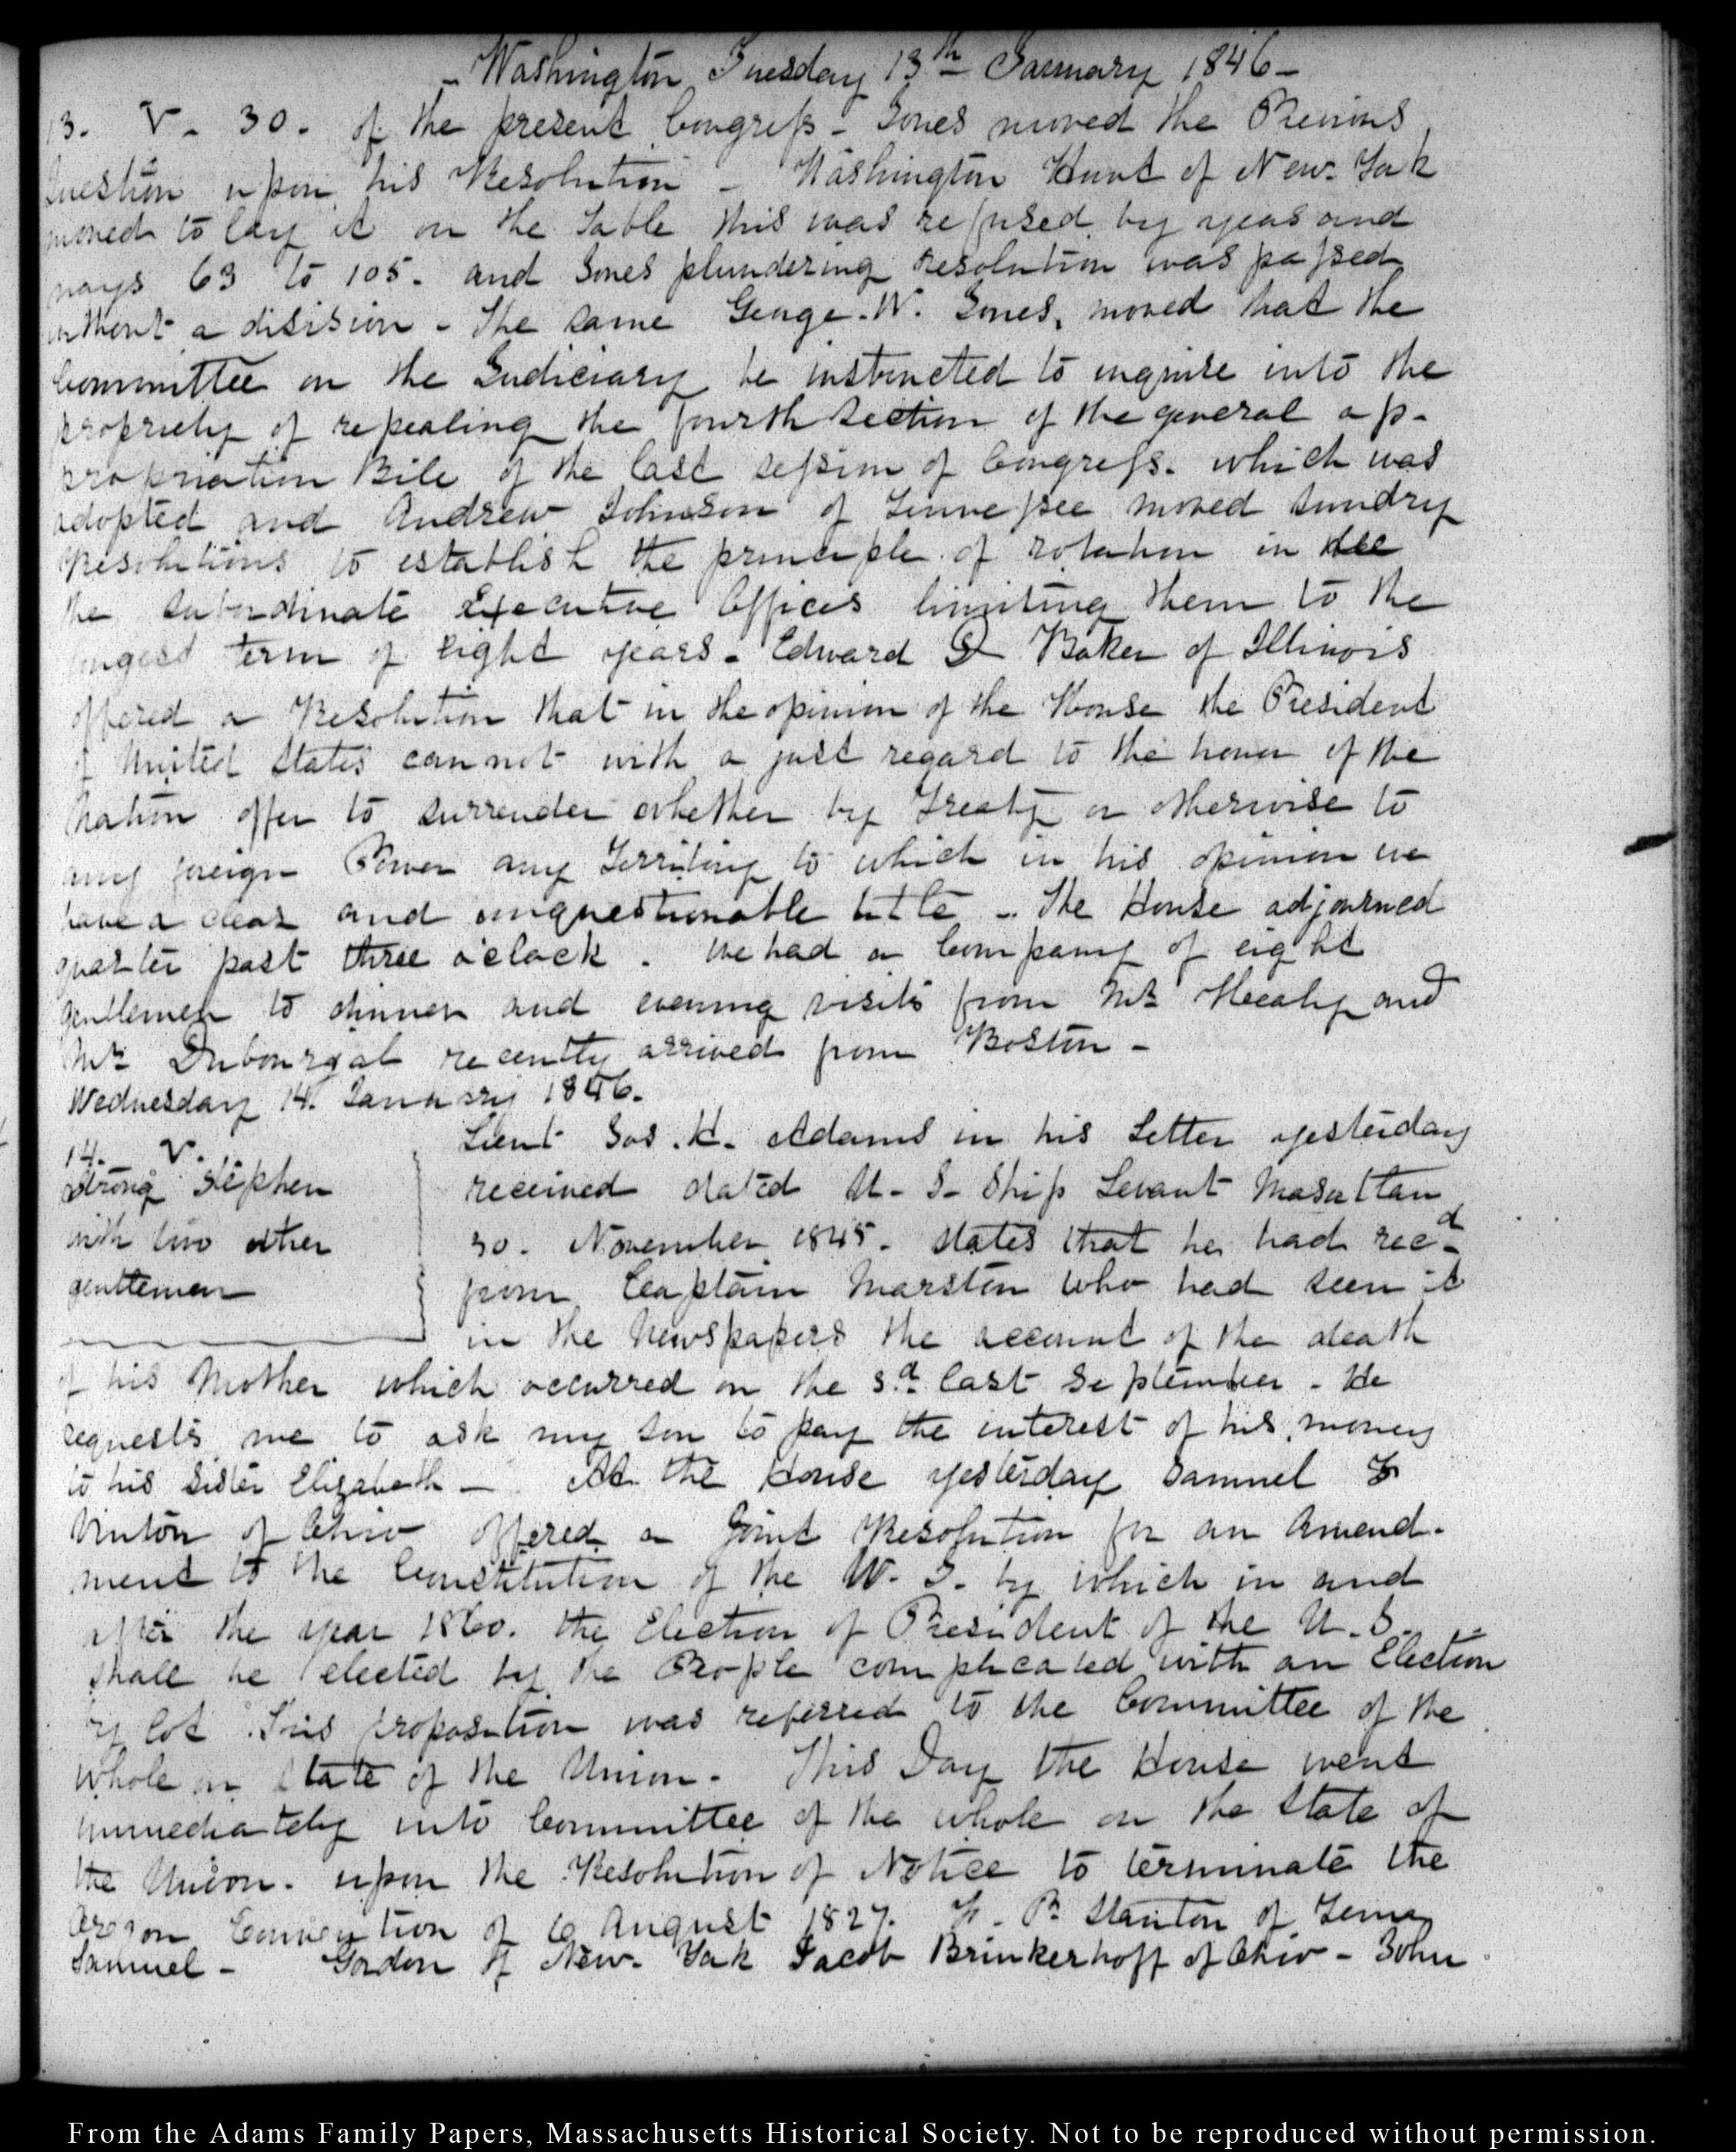 – Washington Tuesday 13th January 1846 –
13. V. 30. of the present Congress – Jones moved the Previous
Question upon his Resolution – Washington Hunt of New-York
moved to lay it on the table this was refused by yeas and
nays 63 to 105. and Jones plundering Resolution was passed
without a division – The same George W. Jones, moved that the
Committee on the Judiciary be instructed to inquire into the
propriety of repealing the fourth Section of the general ap-
propriation Bill of the last session of Congress. which was
adopted and Andrew Johnson of Tennessee moved sundry
Resolutions to establish the principle of rotation in
the subordinate Executive Offices limiting them to the
longest term of eight years – Edward D Baker of Illinois
offered a Resolution that in the opinion of the House the President
of United States cannot with a just regard to the honor of the
Nation offer to surrender whether by Treaty or otherwise to
any foreign Power any Territory to which in his opinion we
have a clear and unquestionable title – The House adjourned
quarter past three o'clock. We had a Company of eight
gentlemen to dinner and evening visits from Mr Healy and
Mr Dubourgal recently arrived from Boston –
Wednesday 14. January 1846.
14. V.
Strong Stephen
with two other
gentlemen
Lieut Jos. H. Adams in his Letter yesterday
received dated U. S. Ship Levant Masattan
30. November 1845. states that he had recd
from Captain Marston who had seen it
in the Newspapers the account of the death
of his Mother which occurred on the 3d last September – He
requests me to ask my son to pay the interest of his money
to his Sister Elizabeth – At the House yesterday Samuel F
Vinton of Ohio offered a Joint Resolution for an Amend-
ment to the Constitution of the U. S. by which in and
after the year 1860. the Election of President of the U. S.
shall be elected by the People complicated with an Election
by lot This proposition was referred to the Committee of the
whole on State of the Union – This Day the House went
immediately into Committee of the whole on the State of
the Union. upon the Resolution of Notice to terminate the
Oregon Convention of 6 August 1827. F. P. Stanton of Tenne
Samuel – Gordon of New-York Jacob Brinkerhoff of Ohio – John
From the Adams Family Papers, Massachusetts Historical Society. Not to be reproduced without permission.